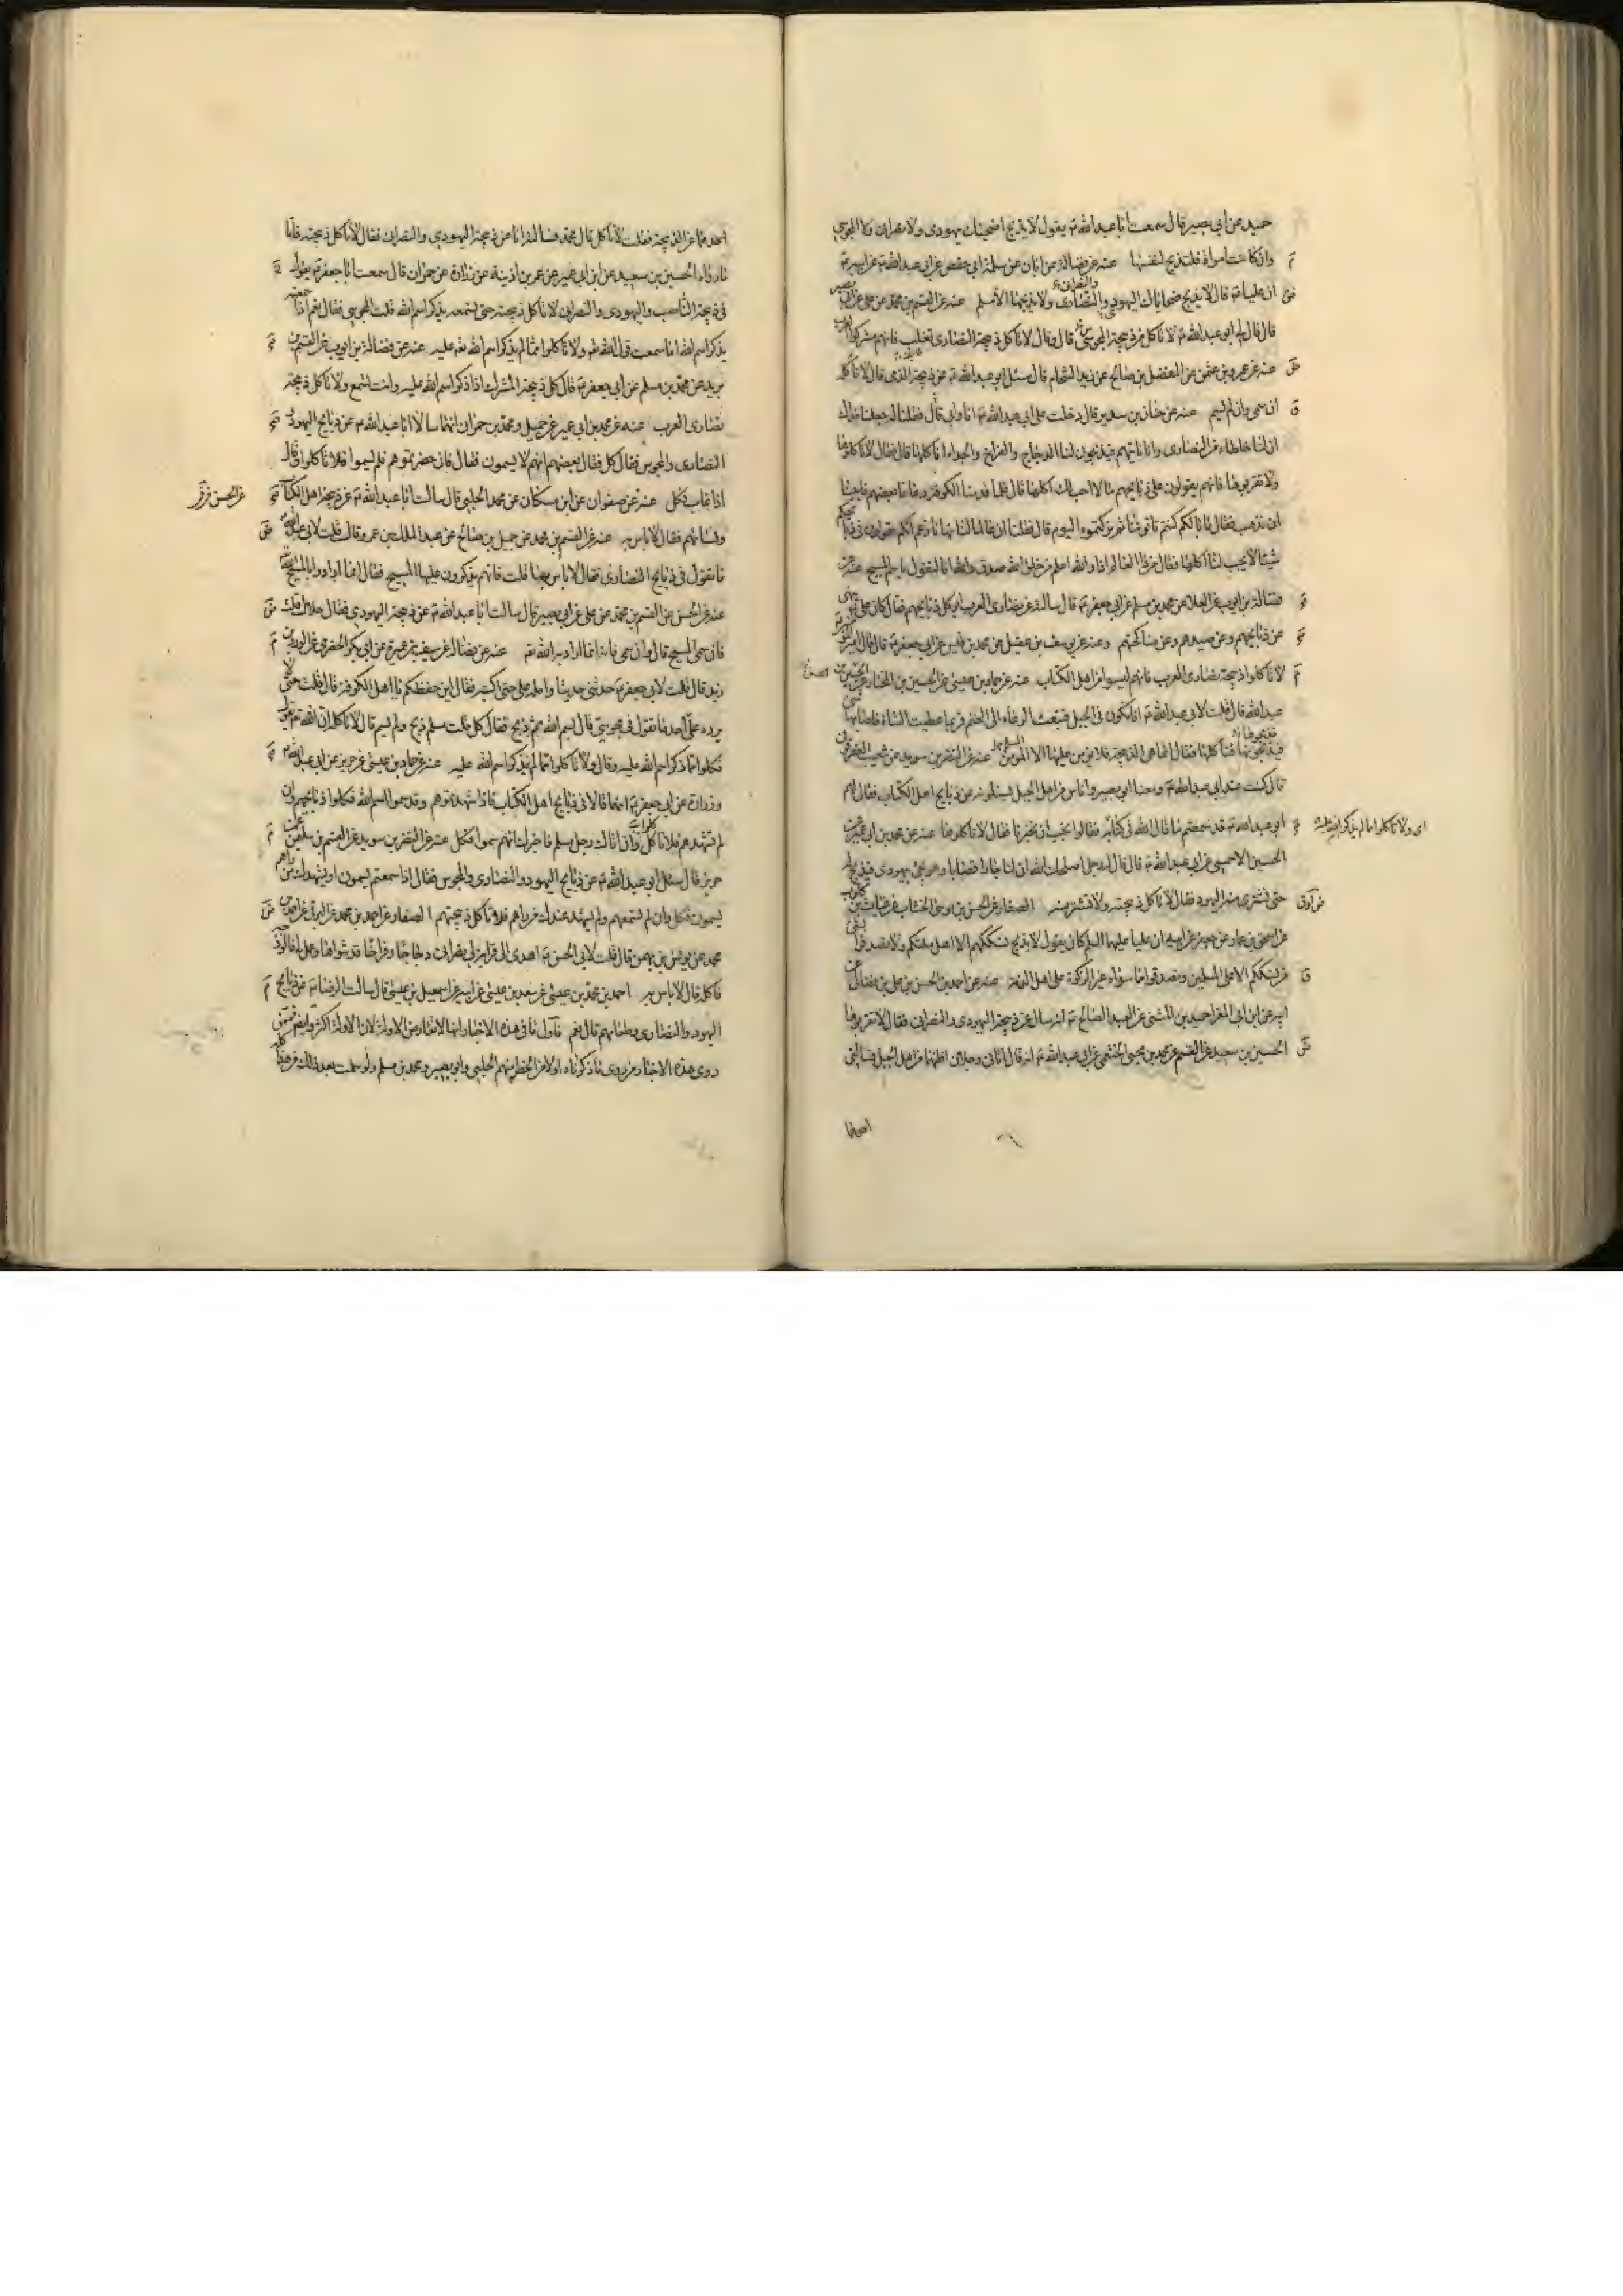 حميد عن ابي بصير قال سمعت ابا عبد الله ع يقول لا يذبح اضحيتك يهودي ولا نصراني ولا المجوسي
وان كانت امراة فلتذبح لنفسها عنه عن فضالة عن ابان عن سلمة ابي حفص عن ابي عبد الله ع عن ابيه ع
ان عليا ع قال لا يذبح ضحاياك اليهود والنصارى ولا يذبحها الا مسلم عنه عن القسم بن محمد عن علي عن ابي بصير
قال قال لي ابو عبد الله ع لا تاكل من ذبيحة المجوسي قال وقال لا تاكل ذبيحة النصارى تغلب فانهم مشركوا العرب
عنه عن عمرو بن عثمن عن المفضل بن صالح عن زيد الشحام قال سئل ابو عبد الله ع عن ذبيحة الذمي قال لا تاكله
ان سمى وان لم يسم عنه عن حنان بن سدير قال دخلت على ابي عبد الله ع انا وابي فقلنا له جعلنا فداك
ان لنا خلطاء من النصارى وانا ناتيهم فيذبحون لنا الدجاج والفراخ والجداء افناكلها قال فقال لا تاكلوها
ولا تقربوها فانهم يقولون على ذبايحهم ما لا احب لك اكلها قال فلما قدمنا الكوفة دعانا بعضهم فابينا
ان نذهب فقال ما بالكم كنتم تاتونا ثم تركتموه اليوم قال فقلنا ان عالما لنا نهانا وزعم انكم تقولون في ذبايحكم
شيئا لا يحب لنا اكلها فقال من هذا العالم اذا والله اعلم من خلق الله صدق والله انا لنقول باسم المسيح عنه عن
فضالة بن ايوب عن العلا عن محمد بن مسلم عن ابي جعفر ع قال سالته عن نصارى العرب اتوكل ذبايحهم فقال كان علي ع ينهى
عن ذبايحهم وعن صيدهم وعن مناكحتهم وعنه عن يوسف بن عقيل عن محمد بن قيس عن ابي جعفر ع قال قال امير المؤمنين ع
لا تاكلوا ذبيحة نصارى العرب فانهم ليسوا من اهل الكتاب عنه عن حماد بن عيسى عن الحسين بن المختار عن الحسين بن
عبد الله قال قلت لابي عبد الله ع انا نكون في الجبل فنبعث الرعاء الى الغنم فربما عطبت الشاة فاصابها شيء
فيذبحونها فناكلها فقال انما هي الذبيحة فلا يؤمن عليها الا المسلم عنه عن النضر بن سويد عن شعيب العقرقوفي
قال كنت عند ابي عبد الله ع ومعنا ابو بصير واناس من اهل الجبل يسئلونه عن ذبايح اهل الكتاب فقال لهم
ابو عبد الله ع قد سمعتم ما قال الله في كتابه فقالوا نحب ان تخبرنا فقال لا تاكلوها عنه عن محمد بن ابي عمير عن
اي ولا تاكلوا مما لم يذكر اسم الله عليه
الحسين الاحمسي عن ابي عبد الله ع قال قال له رجل اصلحك الله ان لنا جارا قصابا وهو يجيء بيهودي فيذبح له
حتى يشترى منه اليهود فقال لا تاكل ذبيحته ولا تشتر منه الصفار عن الحسن بن موسى الخشاب عن غياث بن كلوب
عن اسحق بن عمار عن جعفر عن ابيه ان عليا عليهما السلم كان يقول لا يذبح نسككم الا اهل ملتكم ولا تصدقوا بشيء
من نسككم الا على المسلمين وتصدقوا بما سواه غير الزكوة على اهل الذمة عنه عن احمد بن الحسن بن علي بن فضال عن
ابيه عن ابن ابي المغرا حميد بن المثنى عن العبد الصالح ع انه سال عن ذبيحة اليهودي والنصراني فقال لا تقربوها
الحسين بن سعيد عن القسم عن محمد بن يحيى الخثعمي عن ابي عبد الله ع انه قال اتاني رجلان اظنهما من اهل الجبل فسالني
احدهما
احدهما عن الذبيحة فقلت لا تاكل قال محمد فسالته انا عن ذبيحة اليهودي والنصراني فقال لا تاكل ذبيحته فاما
ما رواه الحسين بن سعيد عن ابن ابي عمير عن عمر بن اذينة عن زرارة عن حمران قال سمعت ابا جعفر ع يقول
في ذبيحة الناصب واليهودي والنصراني لا تاكل ذبيحته حتى تسمعه يذكر اسم الله قلت المجوسي فقال نعم اذا سمعته
يذكر اسم الله اما سمعت قول الله تع ولا تاكلوا مما لم يذكر اسم الله عليه عنه عن فضالة بن ايوب عن القسم بن
بريد عن محمد بن مسلم عن ابي جعفر ع قال كل ذبيحة المشرك اذا ذكر اسم الله عليه وانت تسمع ولا تاكل ذبيحة
نصارى العرب عنه عن محمد بن ابي عمير عن جميل ومحمد بن حمران انهما سالا ابا عبد الله ع عن ذبايح اليهود و
النصارى والمجوس فقال كل فقال بعضهم انهم لا يسمون فقال فان حضرتموهم فلم يسموا فلا تاكلوا وقال
اذا غاب فكل عنه عن صفوان عن ابن مسكان عن محمد الحلبي قال سالت ابا عبد الله ع عن ذبيحة اهل الكتاب
ونسائهم فقال لا باس به عنه عن القسم بن محمد عن جميل بن صالح عن عبد الملك بن عمرو قال قلت لابي عبد الله ع
ما تقول في ذبايح النصارى فقال لا باس بها قلت فانهم يذكرون عليها المسيح فقال انما ارادوا بالمسيح الله
عنه عن الحسن عن القسم بن محمد عن علي عن ابي بصير قال سالت ابا عبد الله ع عن ذبيحة اليهودي فقال حلال قلت
فان سمى المسيح قال وان سمى فانه انما اراد به الله تع عنه عن فضالة عن سيف بن عميرة عن ابي بكر الحضرمي عن الورد بن
زيد قال قلت لابي جعفر ع حدثني حديثا وامله علي حتى اكتبه فقال اين حفظكم يا اهل الكوفة قال قلت حتى لا
يرده علي احد ما تقول في مجوسي قال بسم الله ثم ذبح فقال كل قلت مسلم ذبح ولم يسم قال لا تاكل ان الله تع يقول
فكلوا مما ذكر اسم الله عليه وقال ولا تاكلوا مما لم يذكر اسم الله عليه عنه عن حماد بن عيسى عن حريز عن ابي عبد الله ع
وزرارة عن ابي جعفر ع انهما قالا في ذبايح اهل الكتاب فاذا شهدتموهم وقد سموا اسم الله فكلوا ذبايحهم وان
لم تشهدهم فلا تاكل وان اتاك رجل مسلم فاخبرك انهم سموا فكل عنه عن النضر بن سويد عن القسم بن سليمن عن
حريز قال سئل ابو عبد الله ع عن ذبايح اليهود والنصارى والمجوس فقال اذا سمعتم يسمون او يشهد لك من راهم
يسمون فكل وان لم تسمعهم ولم يشهد عندك من راهم فلا تاكل ذبيحتهم الصفار عن احمد بن محمد عن البرقي عن احمد بن
محمد عن يونس بن بهمن قال قلت لابي الحسن ع اهدى الي قرابة لي نصراني دجاجا وفراخا قد شواها وعمل لي فالوذجة
فاكله قال لا باس به احمد بن محمد بن عيسى عن سعد بن عيسى عن ابيه عن اسمعيل بن عيسى قال سالت الرضا ع عن ذبايح
اليهود والنصارى وطعامهم قال نعم فاول ما في هذه الاخبار انها لا تقابل الاولة لان الاولة اكثر
روى هذه الاخبار من روى ما ذكرناه اولا من الحظر منهم الحلبي وابو بصير ومحمد بن مسلم ولو سلمت بعد ذلك من هذا